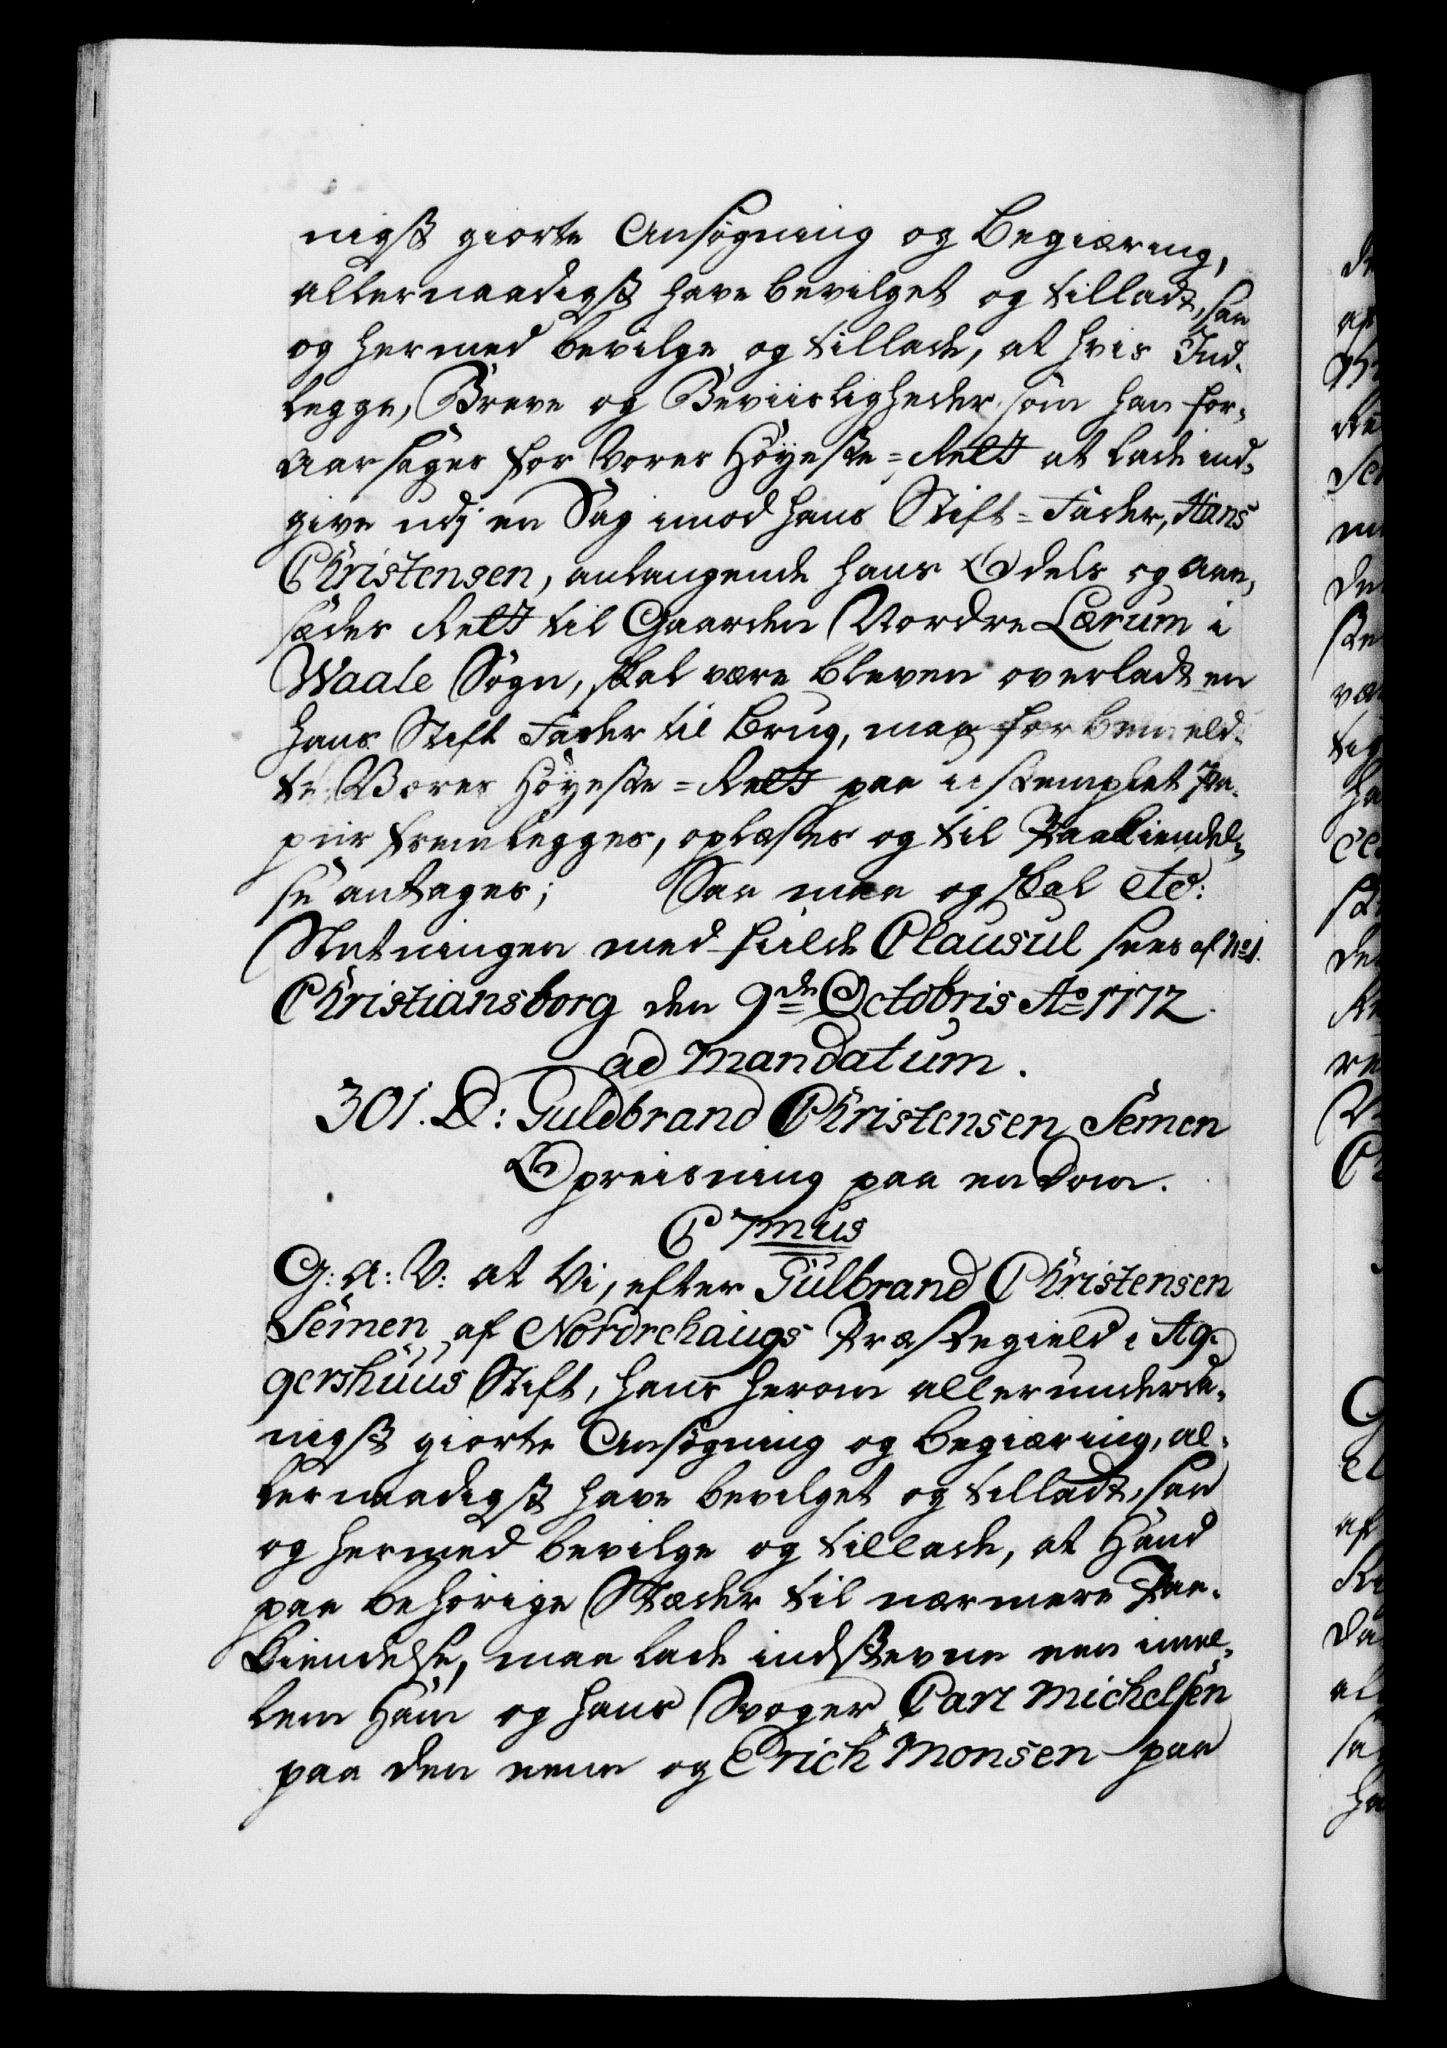 nigst giorte Ansøgning og Begiæring,
allernaadigst have bevilget og tilladt, saa
og hermed bevilge og tillade, at hvis Ind-
legge, Breve og Beviisligheder som han for-
aarsages for Vores Høyeste-Rett at lade ind-
give udj en Sag imod hans Stift-Fader, Hans
Christensen, anlangende hans Odels og Aae-
sædes Rett til Gaarden Nordre Lærum i
Waale Sogn, skal være bleven overladt en
hans Stift Fader til Brug, maa for bemeld-
te Vores Høyeste-Rett paa u-stemplet Pa-
piir fremlegges, oplæses og til Paakiendel-
se antages; Saa maa og skal etc:
Slutningen med fulde Clausul sees af No 1.
Christiansborg den 9de Octobris Ao 1772.
ad Mandatum.
301. B: Guldbrand Christensen Semen
Opreisning paa en Dom.
C 7mus
G: A: V: at Vi, efter Gulbrand Christensen
Semen, af Nordrehaugs Præstegield i Ag-
gershuus Stift, hans herom allerunderda-
nigst giorte Ansøgning og Begiæring, al-
lernaadigst have bevilget og tilladt, saa
og hermed bevilge og tillade, at Hand
paa behørige Stæder til nærmere Paa-
kiendelse, maa lade indstevne een imel-
lem Ham og hans Svoger Carl Michelsen
paa den eene og Erich Monsen paa